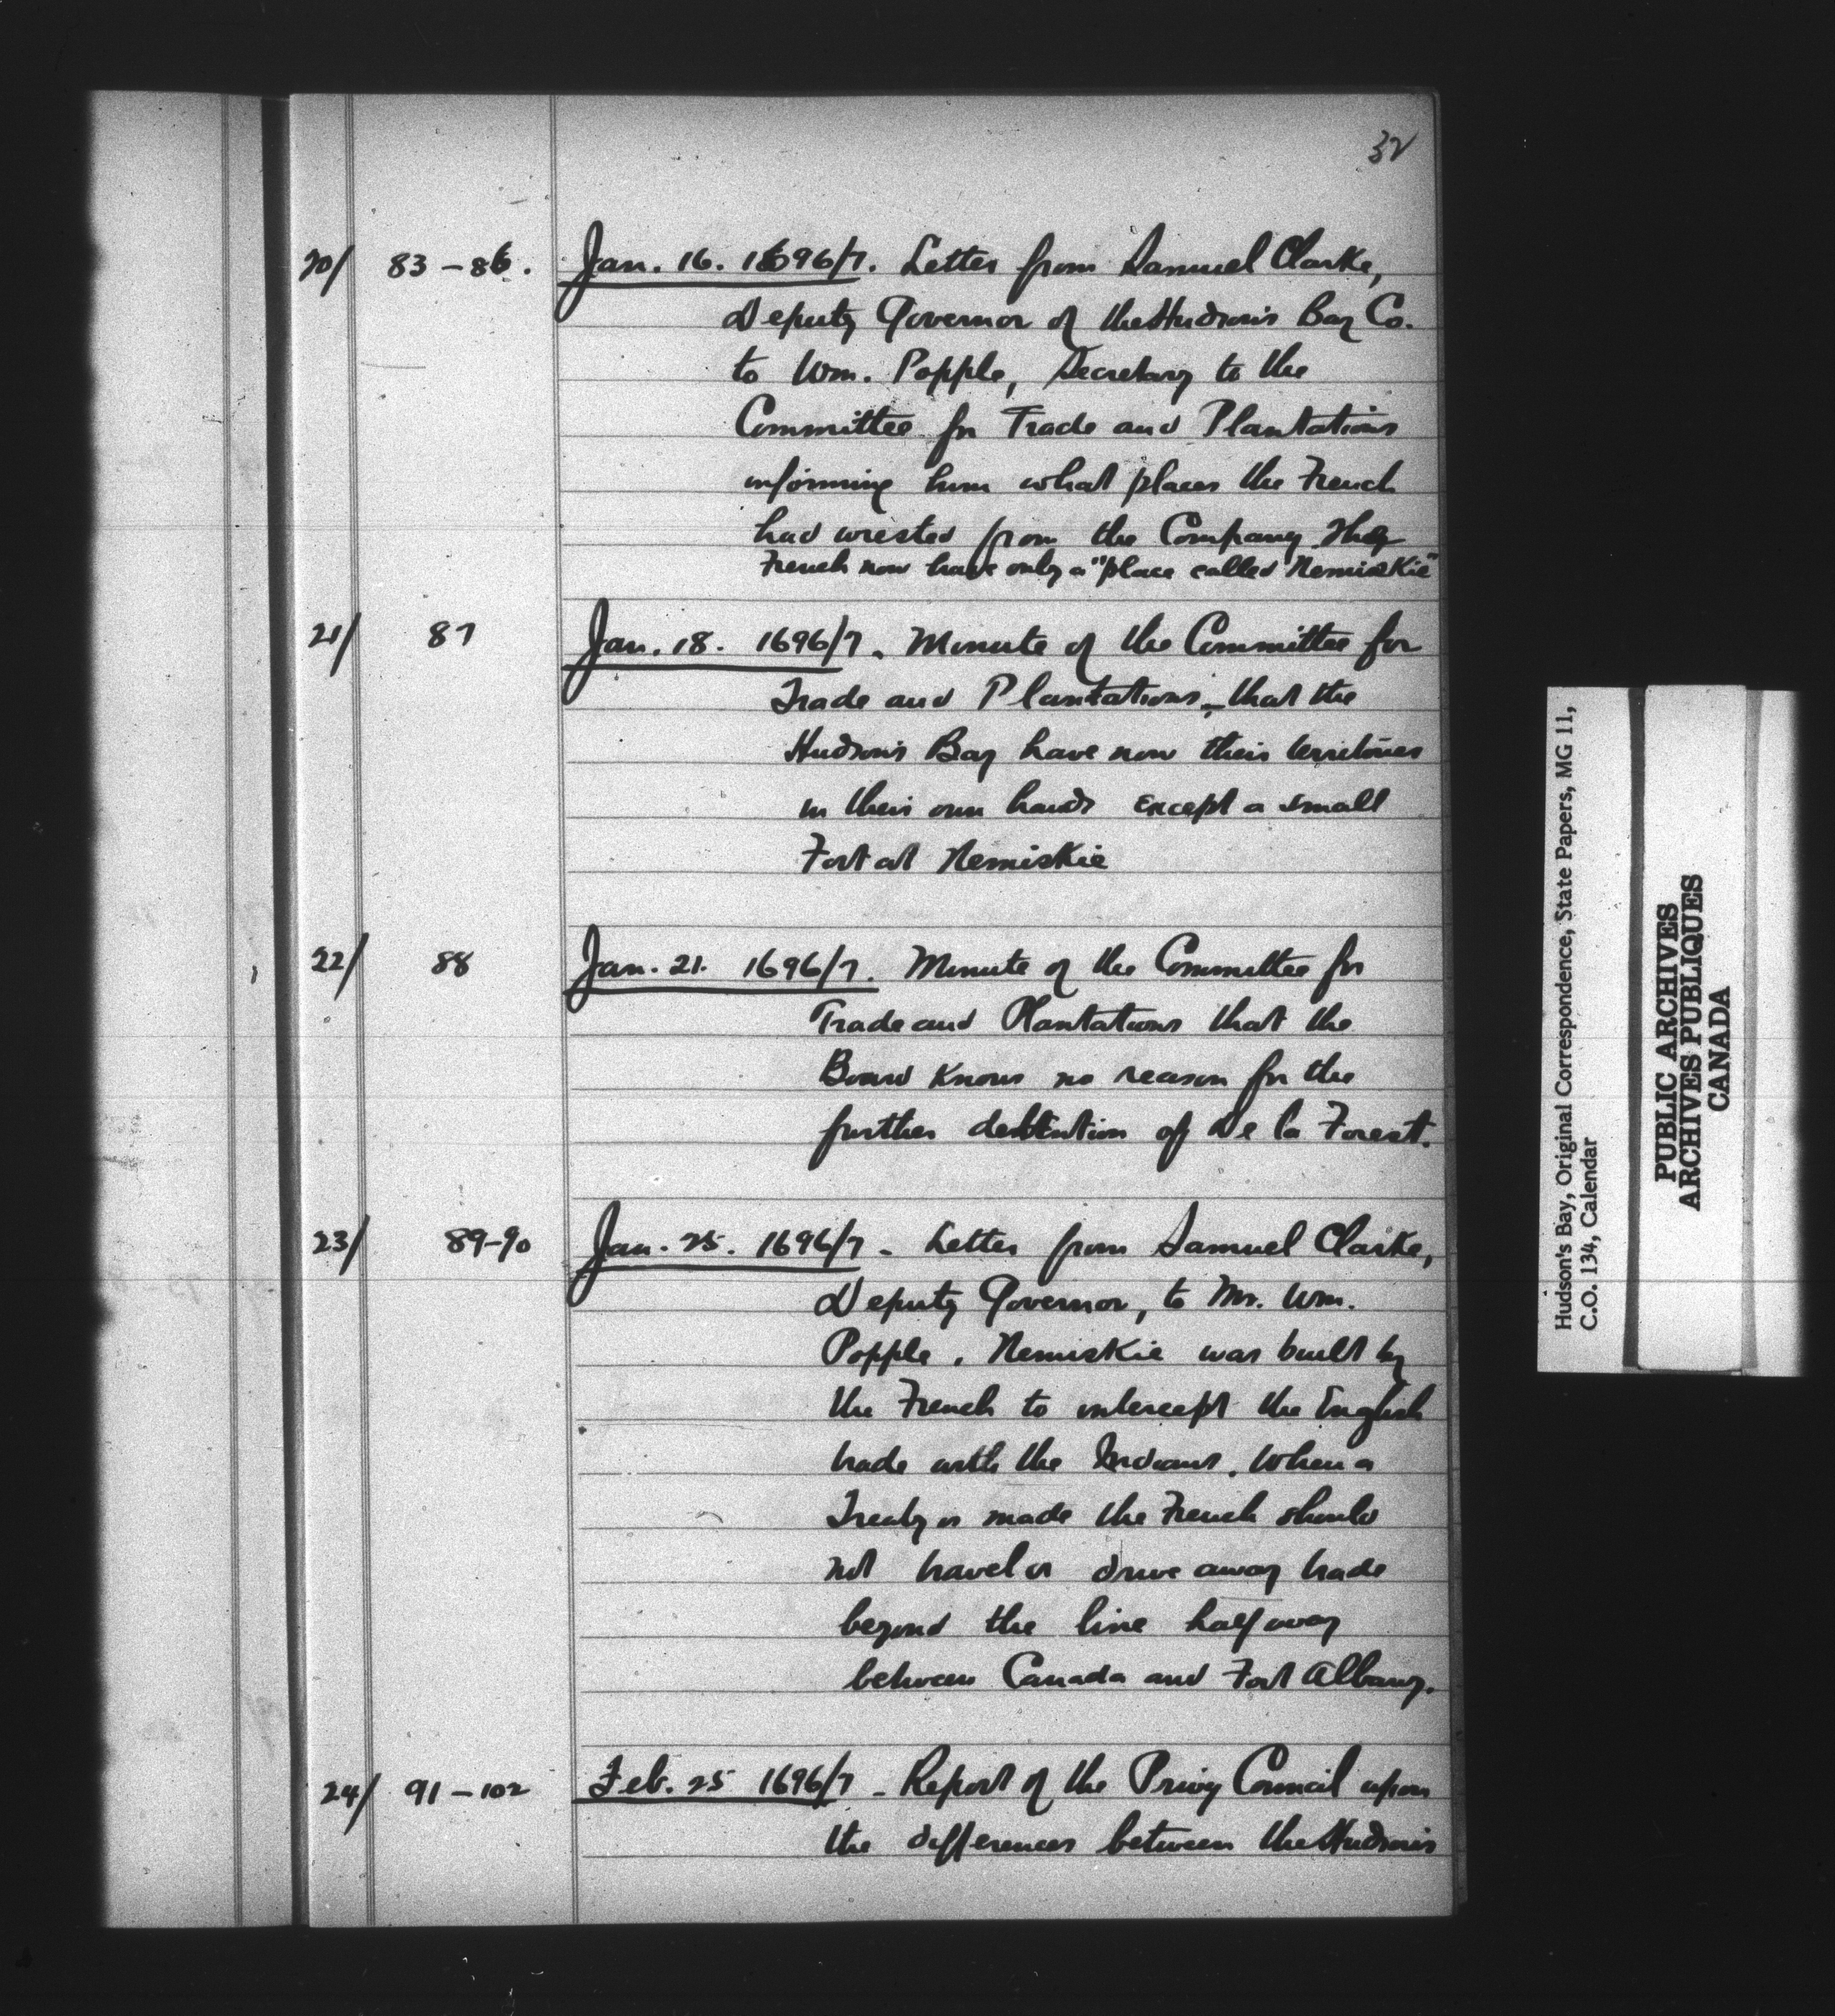 32
20/ 83-86. Jan. 16. 1696/7. Letter from Samuel Clarke,
Deputy Governor of the Hudson's Bay Co.
to Wm. Popple, Secretary to the
Committee for Trade and Plantations
informing him what places the French
had wrested from the Company. The
French now have only a "place called Nemiskie"
21/ 87 Jan. 18. 1696/7. Minute of the Committee for
Trade and Plantations, - that the
Hudson's Bay have now their territories
in their own hands except a small
Fort at Nemiskie
22/ 88 Jan. 21. 1696/7. Minute of the Committee for
Trade and Plantations that the
Board knows no reason for the
further detention of De la Forest.
23/ 89-90 Jan. 25. 1696/7 - Letter from Samuel Clarke,
Deputy Governor, to Mr. Wm.
Popple. Nemiskie was built by
the French to intercept the English
trade with the Indians. When a
Treaty is made the French should
not travel or drive away trade
beyond the line half way
between Canada and Fort Albany.
24/ 91-102 Feb. 25 1696/7 - Report of the Privy Council upon
the differences between the Hudson's
Hudson's Bay, Original Correspondence, State Papers, MG 11,
C.O. 134, Calendar
PUBLIC ARCHIVES
ARCHIVES PUBLIQUES
CANADA